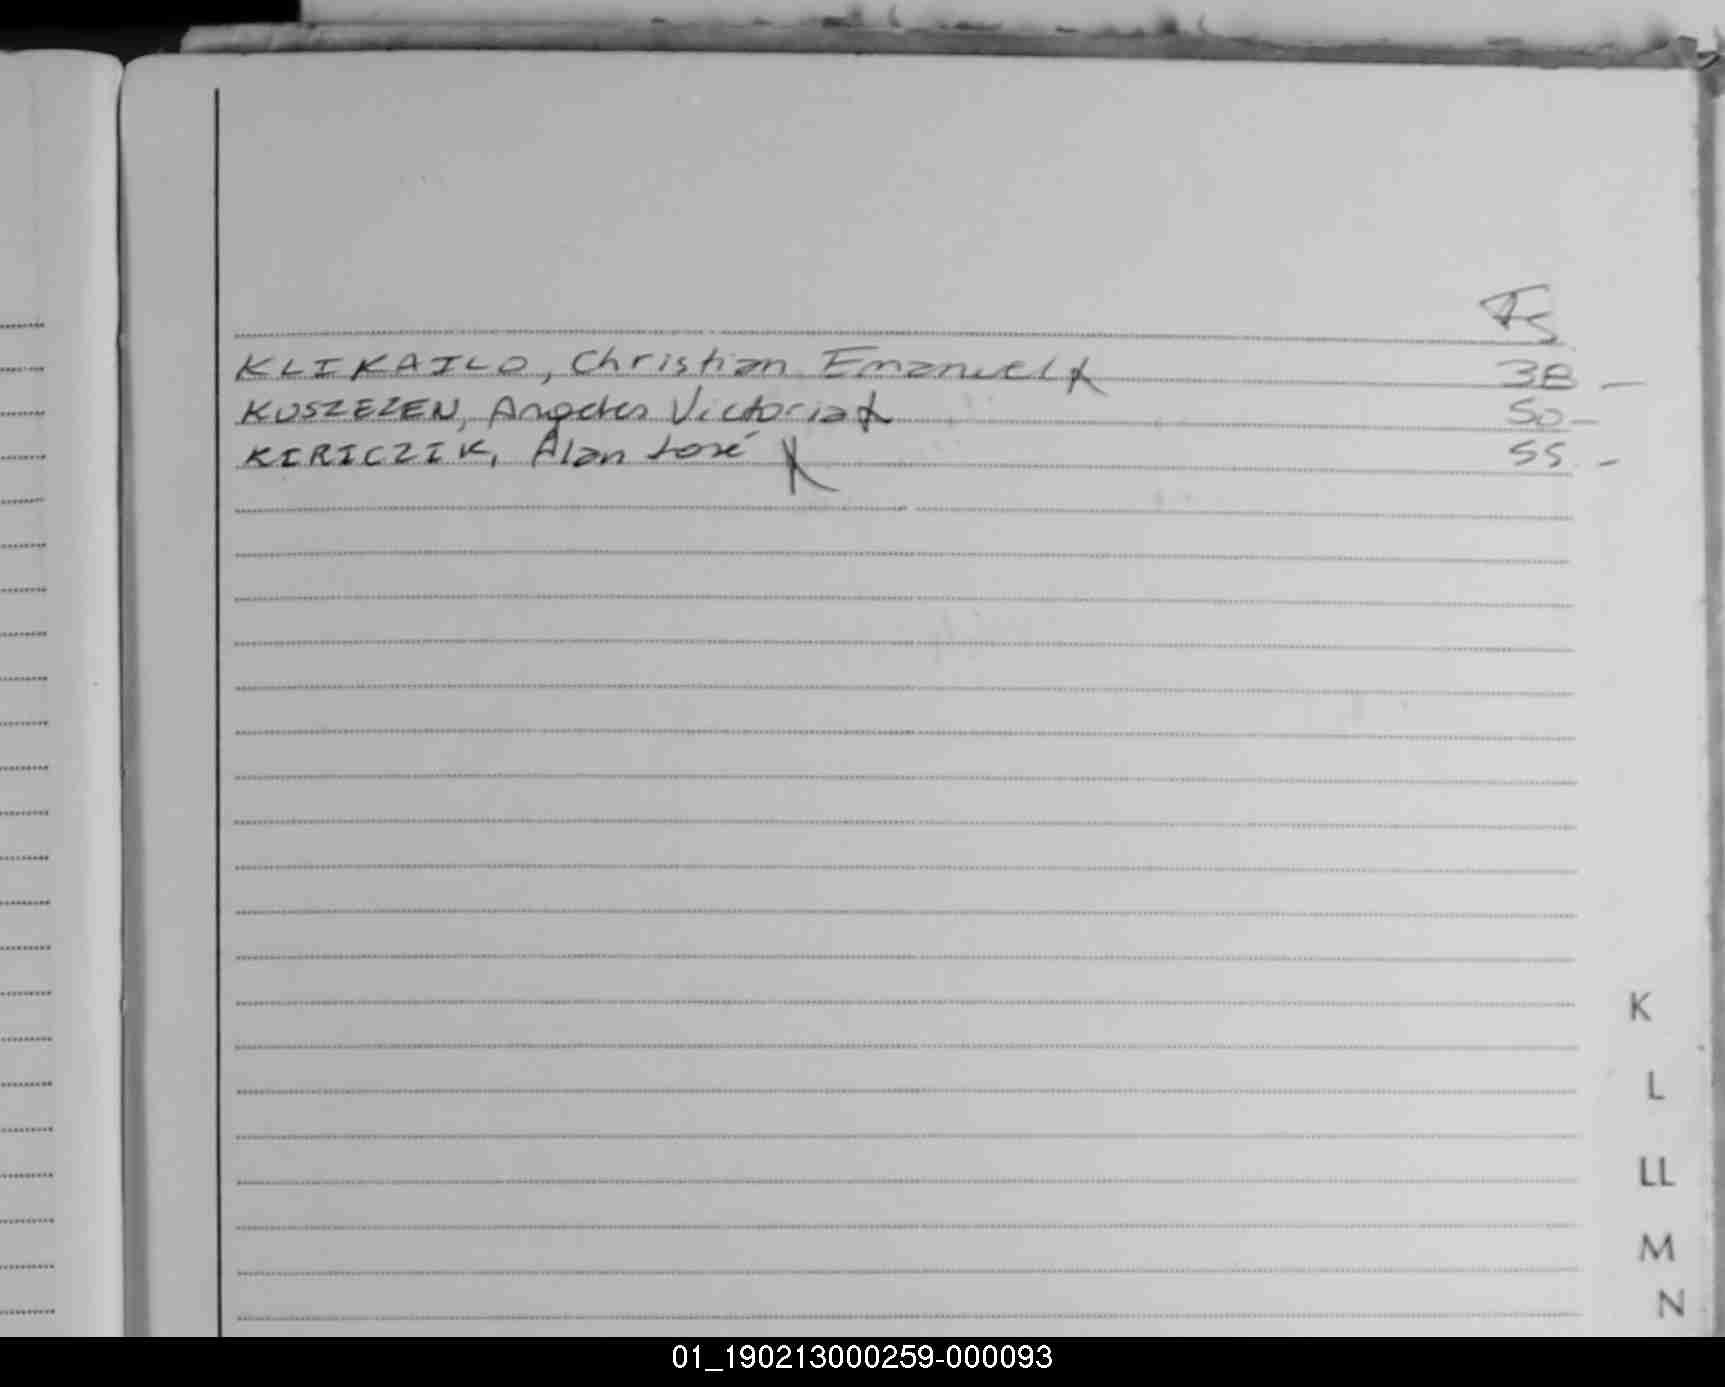 Fs
KLIKAILO, Christian Emanuel 38 -
KUSZEZEN, Angeles Victoria 50 -
KIRICZIK, Alan José 55 -
K
L
LL
M
N
01_190213000259-000093